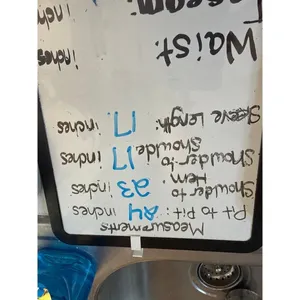 Measurements
Pit to Pit: 24 inches
Shoulder to
Hem: 23 inches
Showlder to
Showlde: 17 inches
Sleeve Length: 17 inches
Waist:
inches
inches